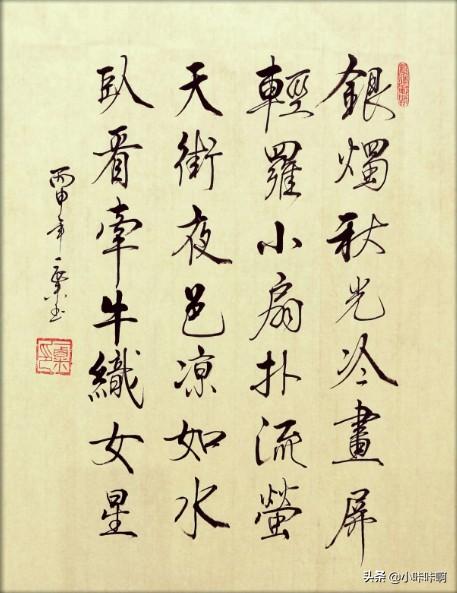 銀燭秋光冷畫屏
輕羅小扇扑流螢
天街夜色凉如水
臥看牽牛織女星
丙申年
头条 @小咔咔啊